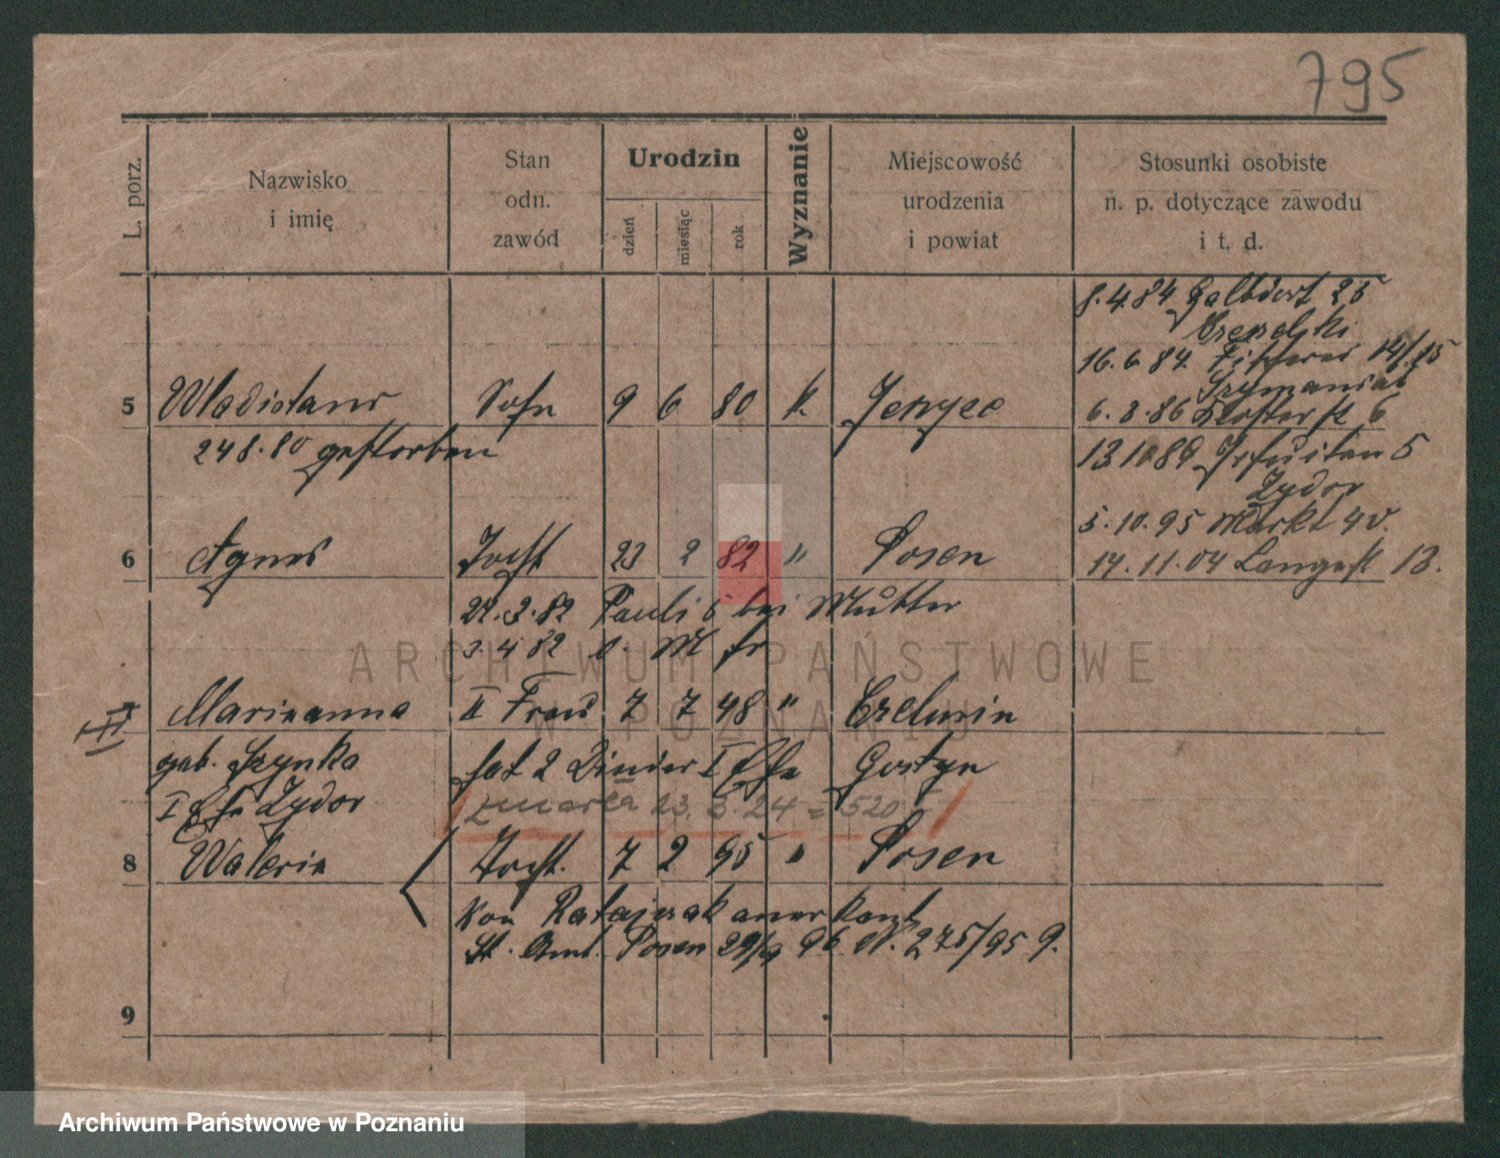 795
L. porz.
Nazwisko
i imię
Stan
odn.
zawód
Urodzin
dzień
miesiąc
rok
Wyznanie
Miejscowość
urodzenia
i powiat
Stosunki osobiste
n. p. dotyczące zawodu
i t. d.
8.4.84 25
16.6.84. 14/15
Szymaniak
6.3.86 Klosterst 6
13.10 89 Jesuiten 5
Zydor
5.10.95 Markt 40.
14.11.04 Langest 13.
5 Wladislaus Sohn 9 6 80 k. Jersyce
24 8.80 gestorben
6 Agnes Tocht 23 2 82 " Posen
27.3.82 Pauli 5 bei Mutter
3.4 82
III Marianna II Frau 7 7 48 " Czeluscin
geb. Szynka hat 2 Kinder I Ehe Gostyn
I Ehe Zydor zmarła 23.3.24 = 520
8 Valeria Tocht. 7 2 95 " Posen
Von Ratajczak anerkannt
St. Amt. Posen 29/9 96 N. 275/95 9.
9
ARCHIWUM PAŃSTWOWE
W POZNANIU
Archiwum Państwowe w Poznaniu